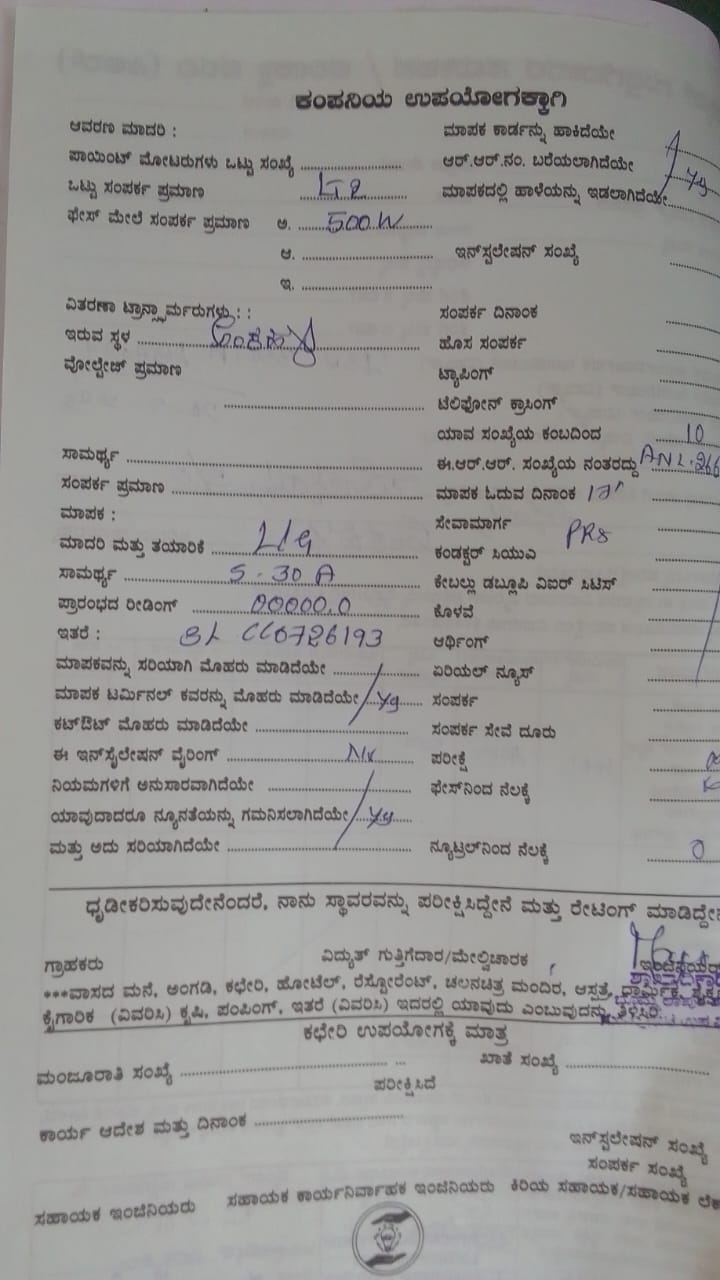 ಕಂಪನಿಯ ಉಪಯೋಗಕ್ಕಾಗಿ
ಆವರಣ ಮಾದರಿ : ಮಾಪಕ ಕಾರ್ಡನ್ನು ಹಾಕಿದೆಯೇ
ಪಾಯಿಂಟ್ ಮೋಟರುಗಳು ಒಟ್ಟು ಸಂಖ್ಯೆ ಆರ್.ಆರ್.ನಂ. ಬರೆಯಲಾಗಿದೆಯೇ
ಒಟ್ಟು ಸಂಪರ್ಕ ಪ್ರಮಾಣ LT2 ಮಾಪಕದಲ್ಲಿ ಹಾಳೆಯನ್ನು ಇಡಲಾಗಿದೆಯೇ
ಫೇಸ್ ಮೇಲೆ ಸಂಪರ್ಕ ಪ್ರಮಾಣ ಅ. 500W
ಆ. ಇನ್‌ಸ್ಟಲೇಷನ್ ಸಂಖ್ಯೆ
ಇ.
ವಿತರಣಾ ಟ್ರಾನ್ಸ್ಫಾರ್ಮರುಗಳು : : ಸಂಪರ್ಕ ದಿನಾಂಕ
ಇರುವ ಸ್ಥಳ ಹೊಸ ಸಂಪರ್ಕ
ವೋಲ್ಟೇಜ್ ಪ್ರಮಾಣ ಟ್ಯಾಪಿಂಗ್
ಟೆಲಿಫೋನ್ ಕ್ರಾಸಿಂಗ್
ಯಾವ ಸಂಖ್ಯೆಯ ಕಂಬದಿಂದ 10
ಸಾಮರ್ಥ್ಯ ಈ.ಆರ್.ಆರ್. ಸಂಖ್ಯೆಯ ನಂತರದ್ದು ANL.266
ಸಂಪರ್ಕ ಪ್ರಮಾಣ ಮಾಪಕ ಓದುವ ದಿನಾಂಕ
ಮಾಪಕ : ಸೇವಾಮಾರ್ಗ
ಮಾದರಿ ಮತ್ತು ತಯಾರಿಕೆ L/G ಕಂಡಕ್ಟರ್ ಸಿಯುಎ
ಸಾಮರ್ಥ್ಯ 5-30 A ಕೇಬಲ್ಲು ಡಬ್ಲೂಪಿ ವಿಐರ್ ಸಿಟಿಸ್
ಪ್ರಾರಂಭದ ರೀಡಿಂಗ್ 00000.0 ಕೊಳವೆ
ಇತರೆ : SL CC0726193 ಆರ್ಥಿಂಗ್
ಮಾಪಕವನ್ನು ಸರಿಯಾಗಿ ಮೊಹರು ಮಾಡಿದೆಯೇ ಏರಿಯಲ್ ನ್ಯೂಸ್
ಮಾಪಕ ಟರ್ಮಿನಲ್ ಕವರನ್ನು ಮೊಹರು ಮಾಡಿದೆಯೇ ಸಂಪರ್ಕ
ಕಟ್‌ಔಟ್ ಮೊಹರು ಮಾಡಿದೆಯೇ ಸಂಪರ್ಕ ಸೇವೆ ದೂರು
ಈ ಇನ್‌ಸ್ಟೈಲೇಷನ್ ವೈರಿಂಗ್ ಪರೀಕ್ಷೆ
ನಿಯಮಗಳಿಗೆ ಅನುಸಾರವಾಗಿದೆಯೇ ಫೇಸ್‌ನಿಂದ ನೆಲಕ್ಕೆ
ಯಾವುದಾದರೂ ನ್ಯೂನತೆಯನ್ನು ಗಮನಿಸಲಾಗಿದೆಯೇ
ಮತ್ತು ಅದು ಸರಿಯಾಗಿದೆಯೇ ನ್ಯೂಟ್ರಲ್‌ನಿಂದ ನೆಲಕ್ಕೆ 0
ಧೃಡೀಕರಿಸುವುದೇನೆಂದರೆ, ನಾನು ಸ್ಥಾವರವನ್ನು ಪರೀಕ್ಷಿಸಿದ್ದೇನೆ ಮತ್ತು ರೇಟಿಂಗ್ ಮಾಡಿದ್ದೇನೆ
ಗ್ರಾಹಕರು ವಿದ್ಯುತ್ ಗುತ್ತಿಗೆದಾರ/ಮೇಲ್ವಿಚಾರಕ
***ವಾಸದ ಮನೆ, ಅಂಗಡಿ, ಕಛೇರಿ, ಹೋಟೆಲ್, ರೆಸ್ಟೋರೆಂಟ್, ಚಲನಚಿತ್ರ ಮಂದಿರ, ಆಸ್ಪತ್ರೆ, ಧಾರ್ಮಿಕ,
ಕೈಗಾರಿಕೆ (ವಿವರಿಸಿ) ಕೃಷಿ, ಪಂಪಿಂಗ್, ಇತರೆ (ವಿವರಿಸಿ) ಇದರಲ್ಲಿ ಯಾವುದು ಎಂಬುವುದನ್ನು ತಿಳಿಸಿರಿ.
ಕಛೇರಿ ಉಪಯೋಗಕ್ಕೆ ಮಾತ್ರ
ಮಂಜೂರಾತಿ ಸಂಖ್ಯೆ ಖಾತೆ ಸಂಖ್ಯೆ
ಪರೀಕ್ಷಿಸಿದೆ
ಕಾರ್ಯ ಆದೇಶ ಮತ್ತು ದಿನಾಂಕ
ಇನ್‌ಸ್ಟಲೇಶನ್ ಸಂಖ್ಯೆ
ಸಂಪರ್ಕ ಸಂಖ್ಯೆ
ಸಹಾಯಕ ಇಂಜಿನಿಯರು ಸಹಾಯಕ ಕಾರ್ಯನಿರ್ವಾಹಕ ಇಂಜಿನಿಯರು ಕಿರಿಯ ಸಹಾಯಕ/ಸಹಾಯಕ